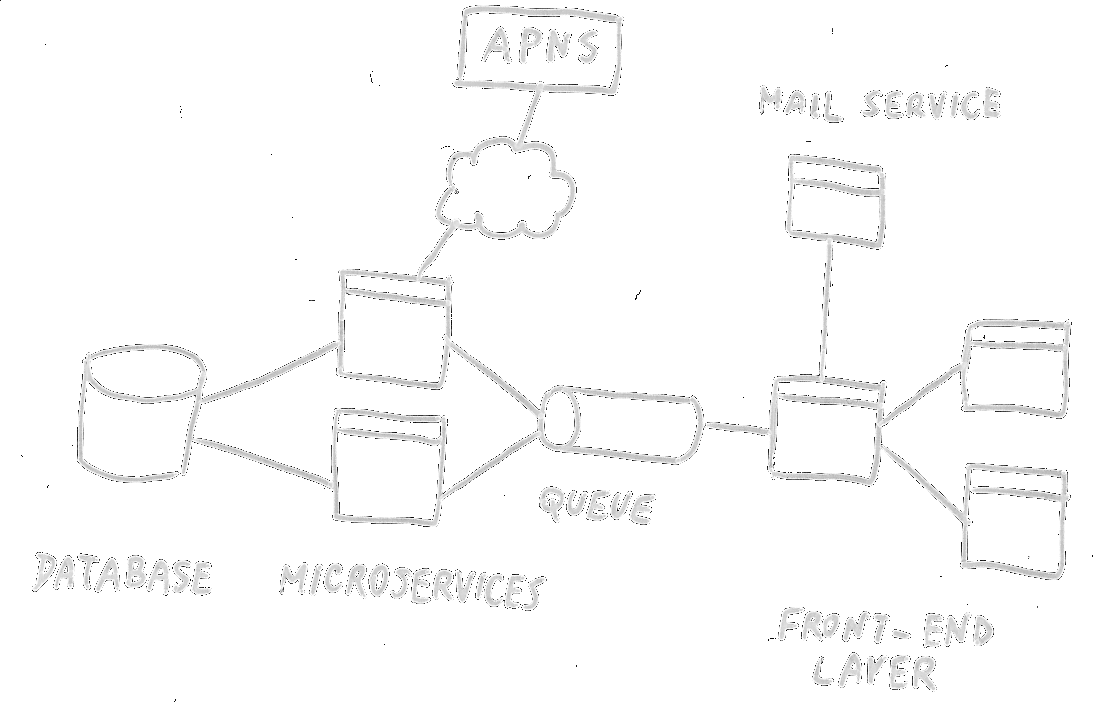 APNS
MAIL SERVICE
QUEUE
DATABASE
MICROSERVICES
FRONT-END
LAYER